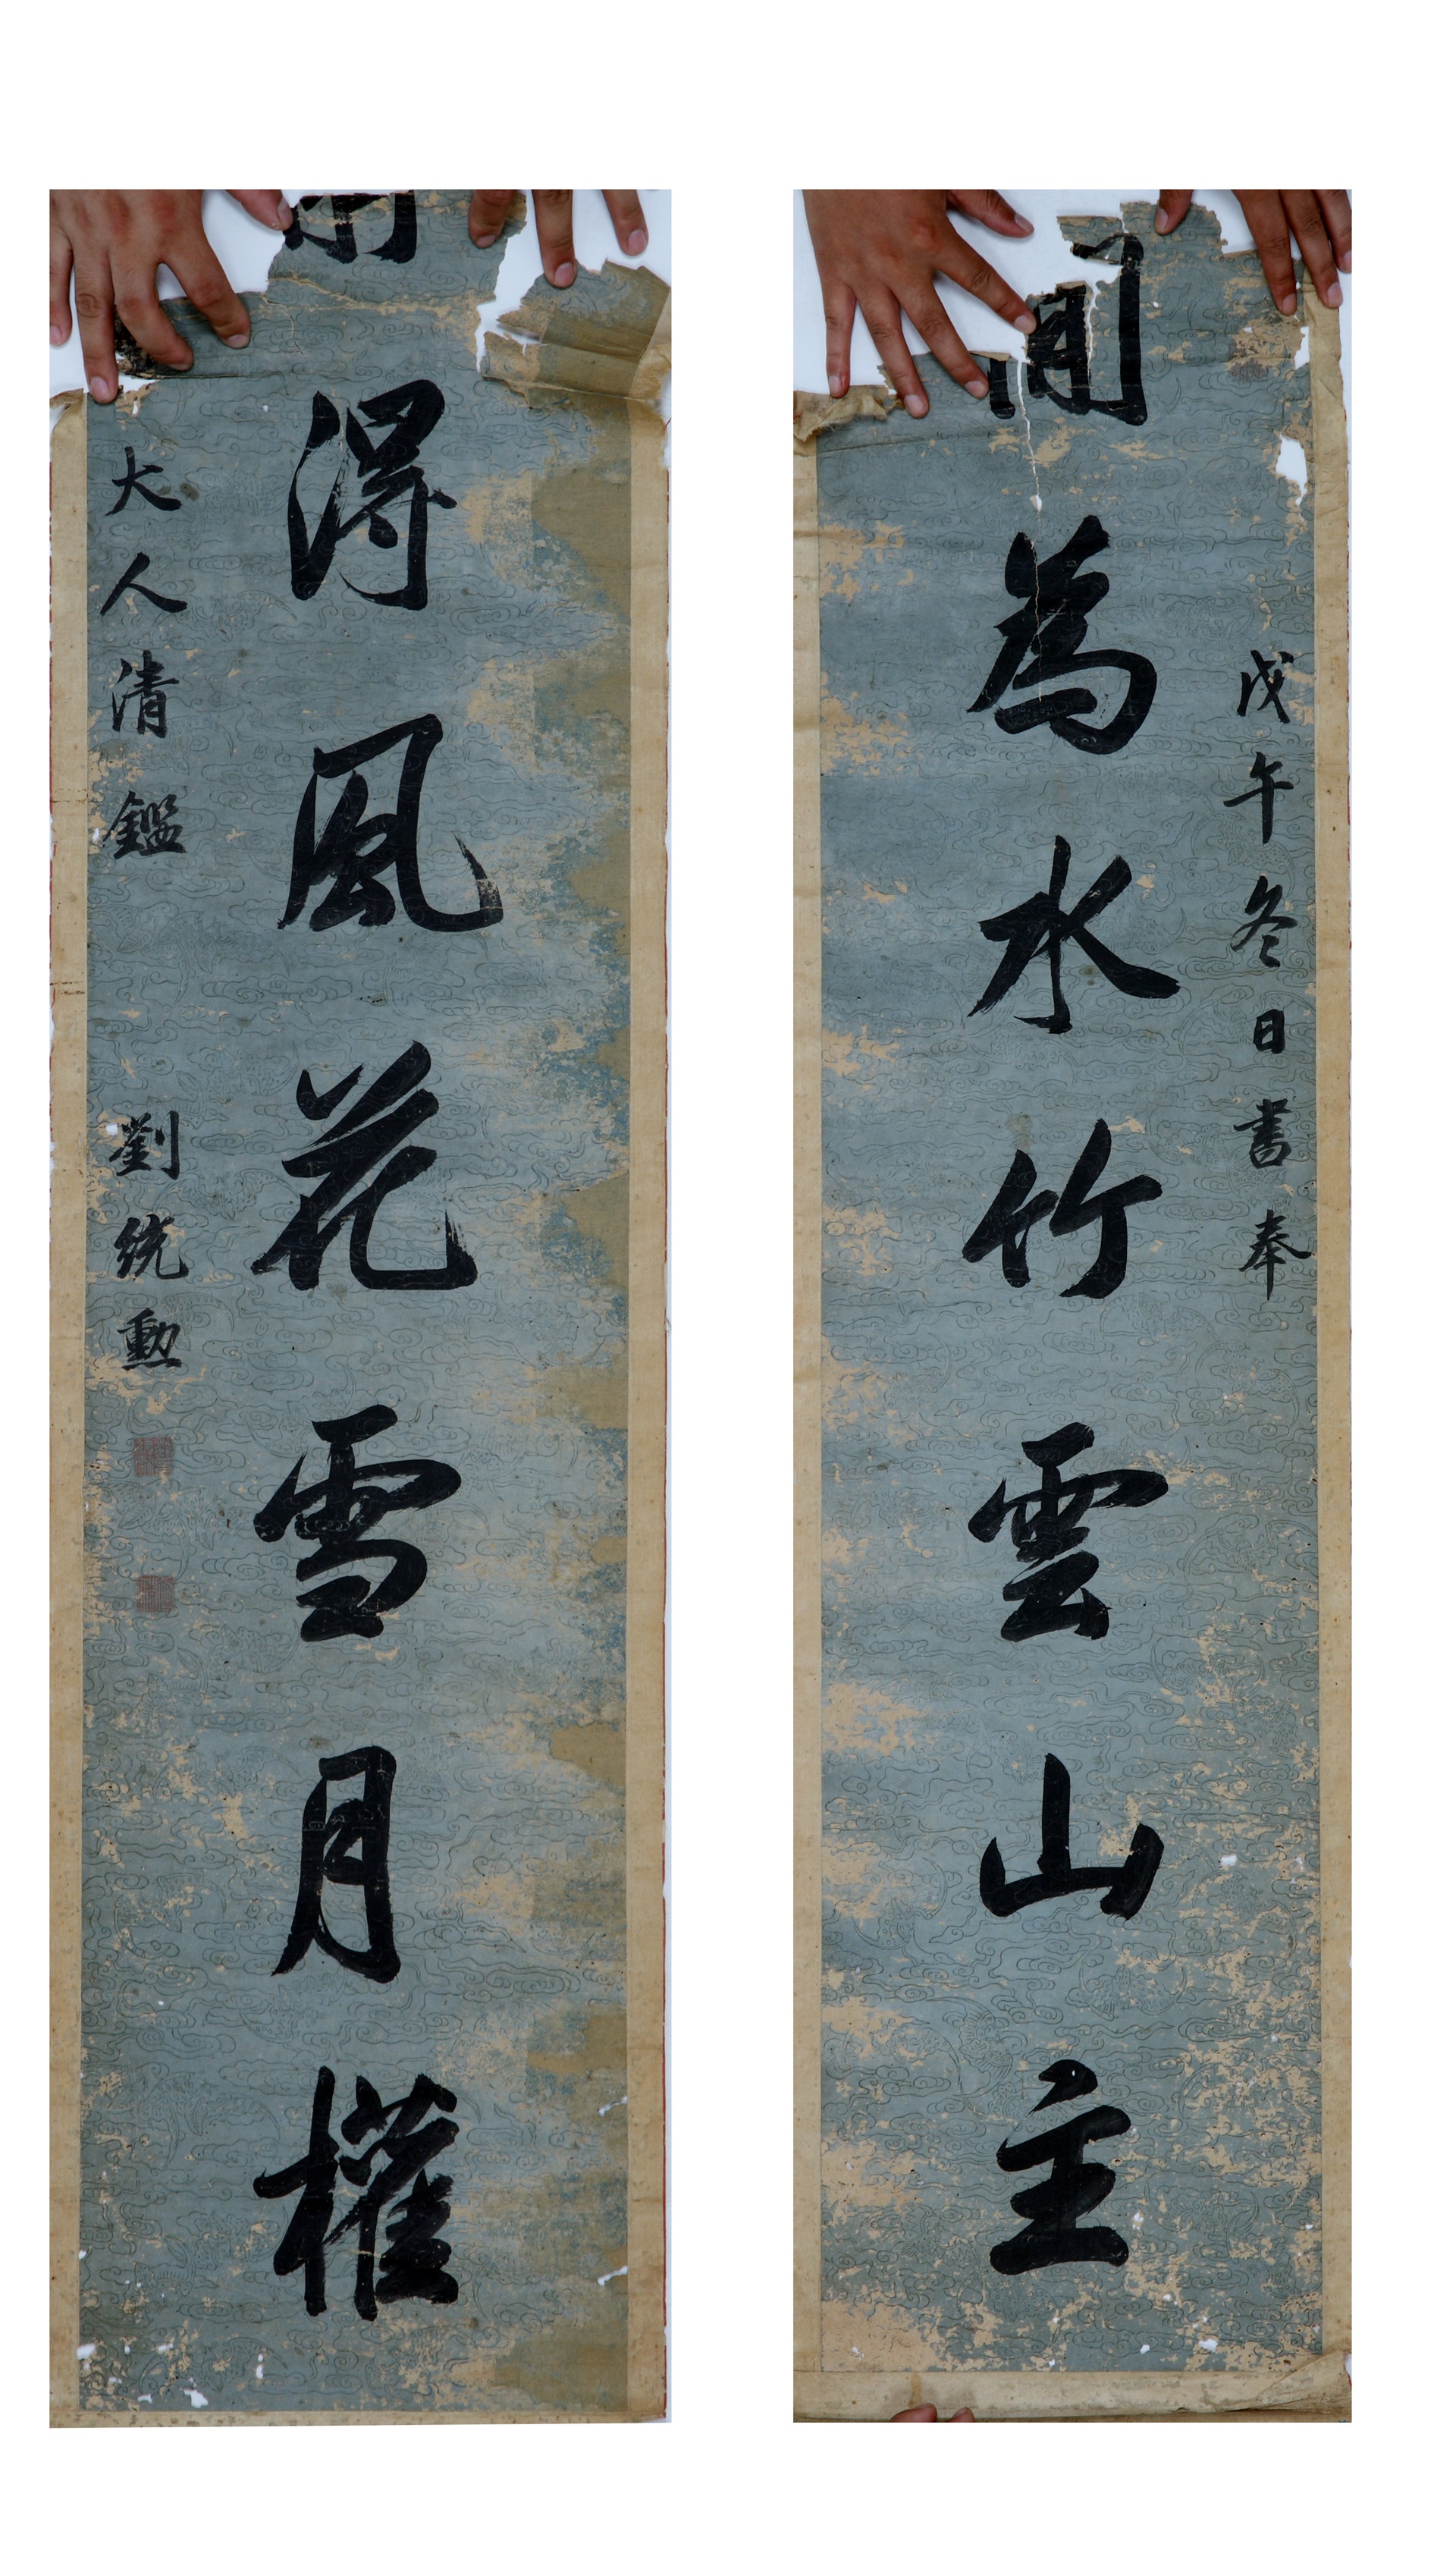 戊午冬日書奉
為水竹雲山主
得風花雪月權
大人清鑑
劉統勳